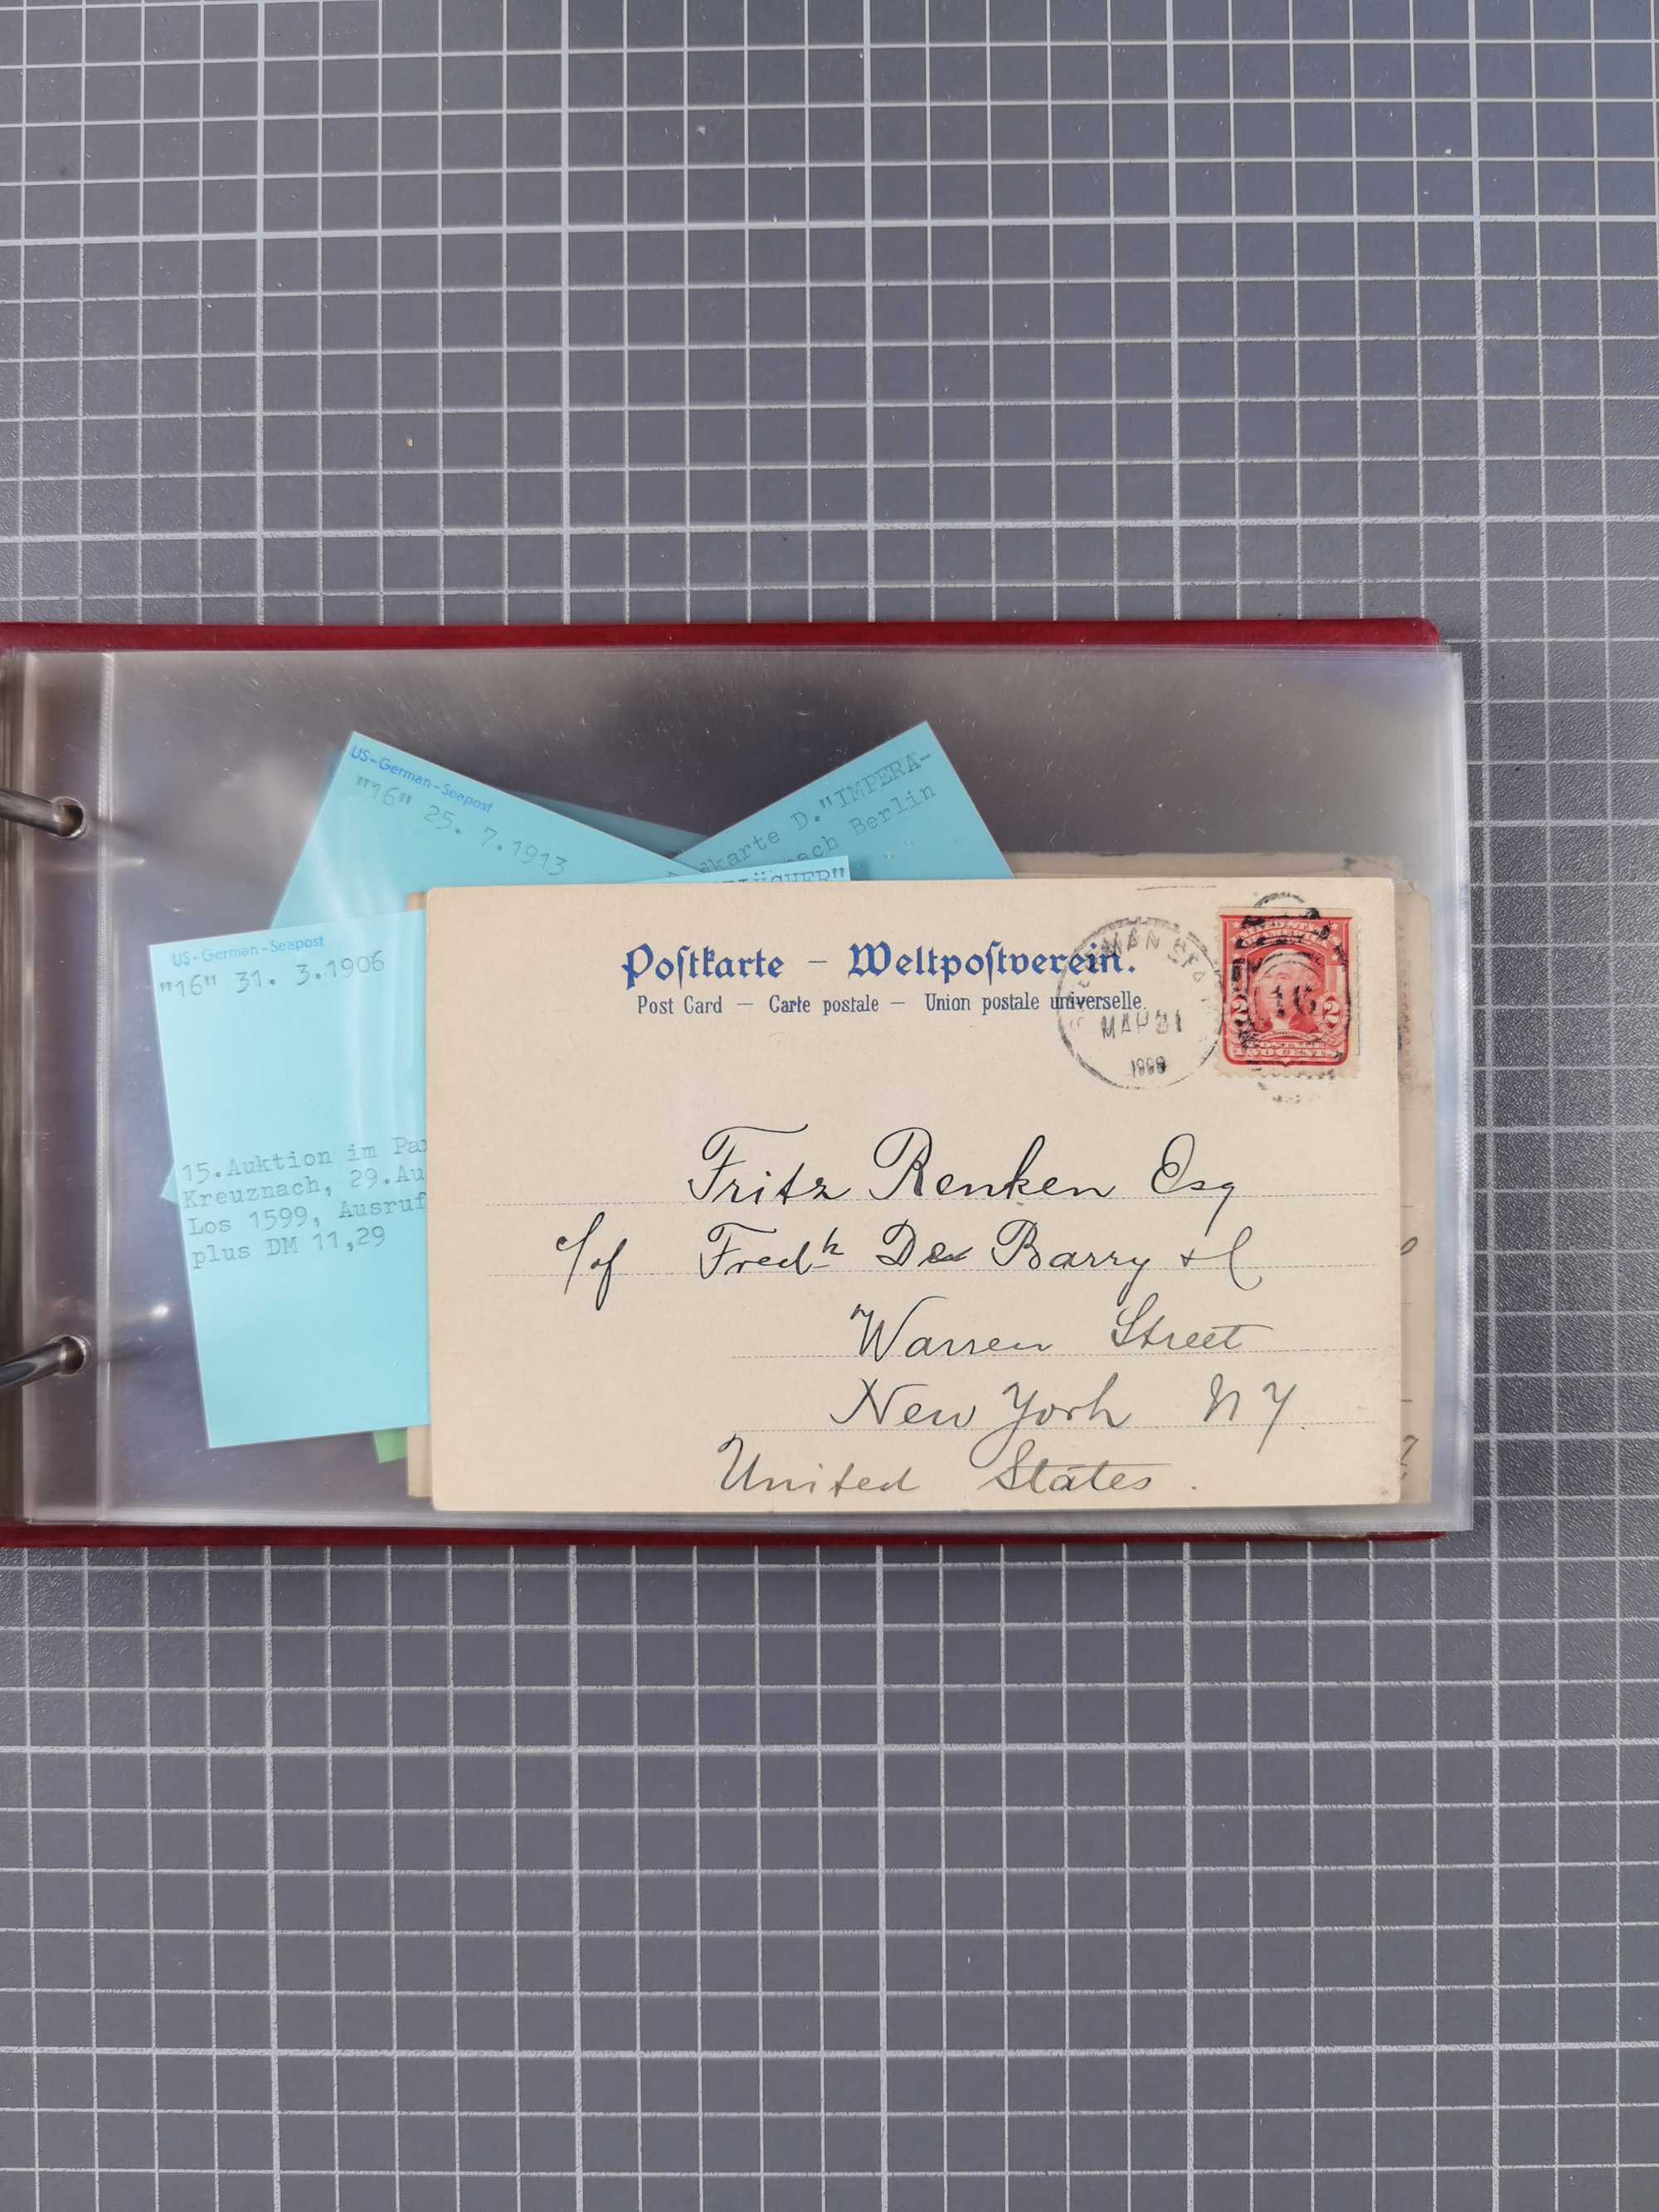 US-German-Seapost
"16" 25. 7.1913
D."IMPERA-
nach Berlin
US-German-Seapost
"16" 31. 3.1906
15.Auktion im
Kreuznach, 29.
Los 1599, Ausruf
plus DM 11,29
Postkarte – Weltpostverein.
Post Card — Carte postale — Union postale universelle.
MAR 31
16
2 2
TWO CENTS
Fritz Renken Esq
c/of Fredk De Barry & C
Warren Street
New York NY.
United States.